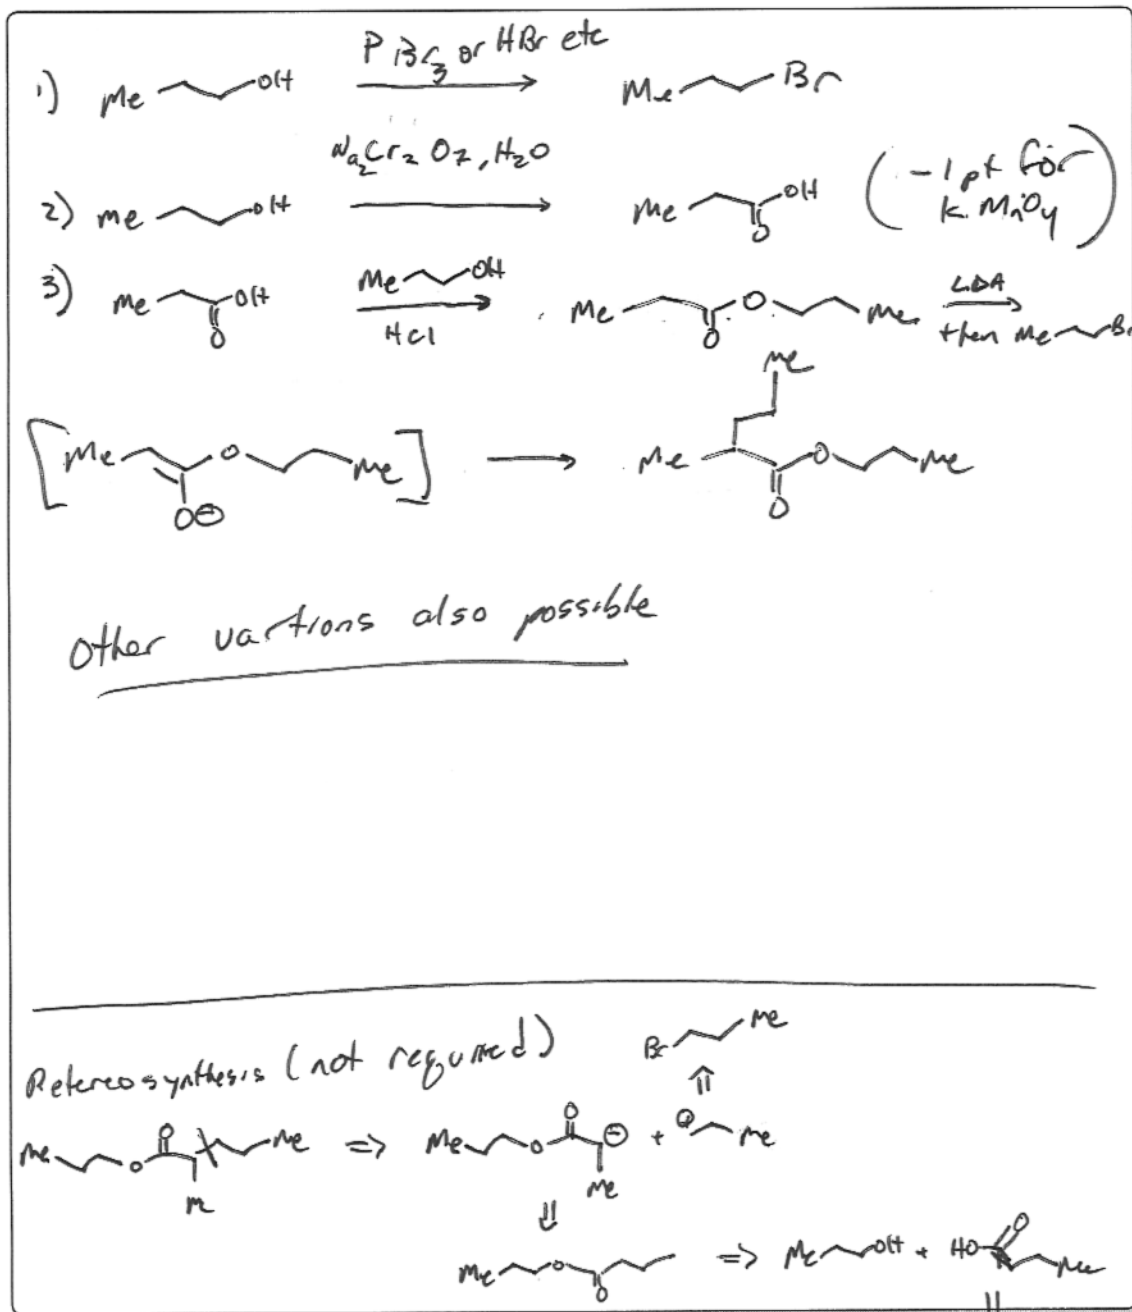 1) Me OH PBr3 or HBr etc Me Br
2) me OH Na2Cr2O7, H2O Me OH O (-1 pt for
KMnO4)
3) Me OH O Me OH HCl Me O O Me LDA
then Me Br
[Me O Me O⊖] → Me Me O O Me
Other vartions also possible
Retereosynthesis (not required)
Br Me
⇑
Me O O Me Me ⇒ Me O O ⊖ Me + ⊕ Me
⇓
Me O O ⇒ Me OH + HO O Me